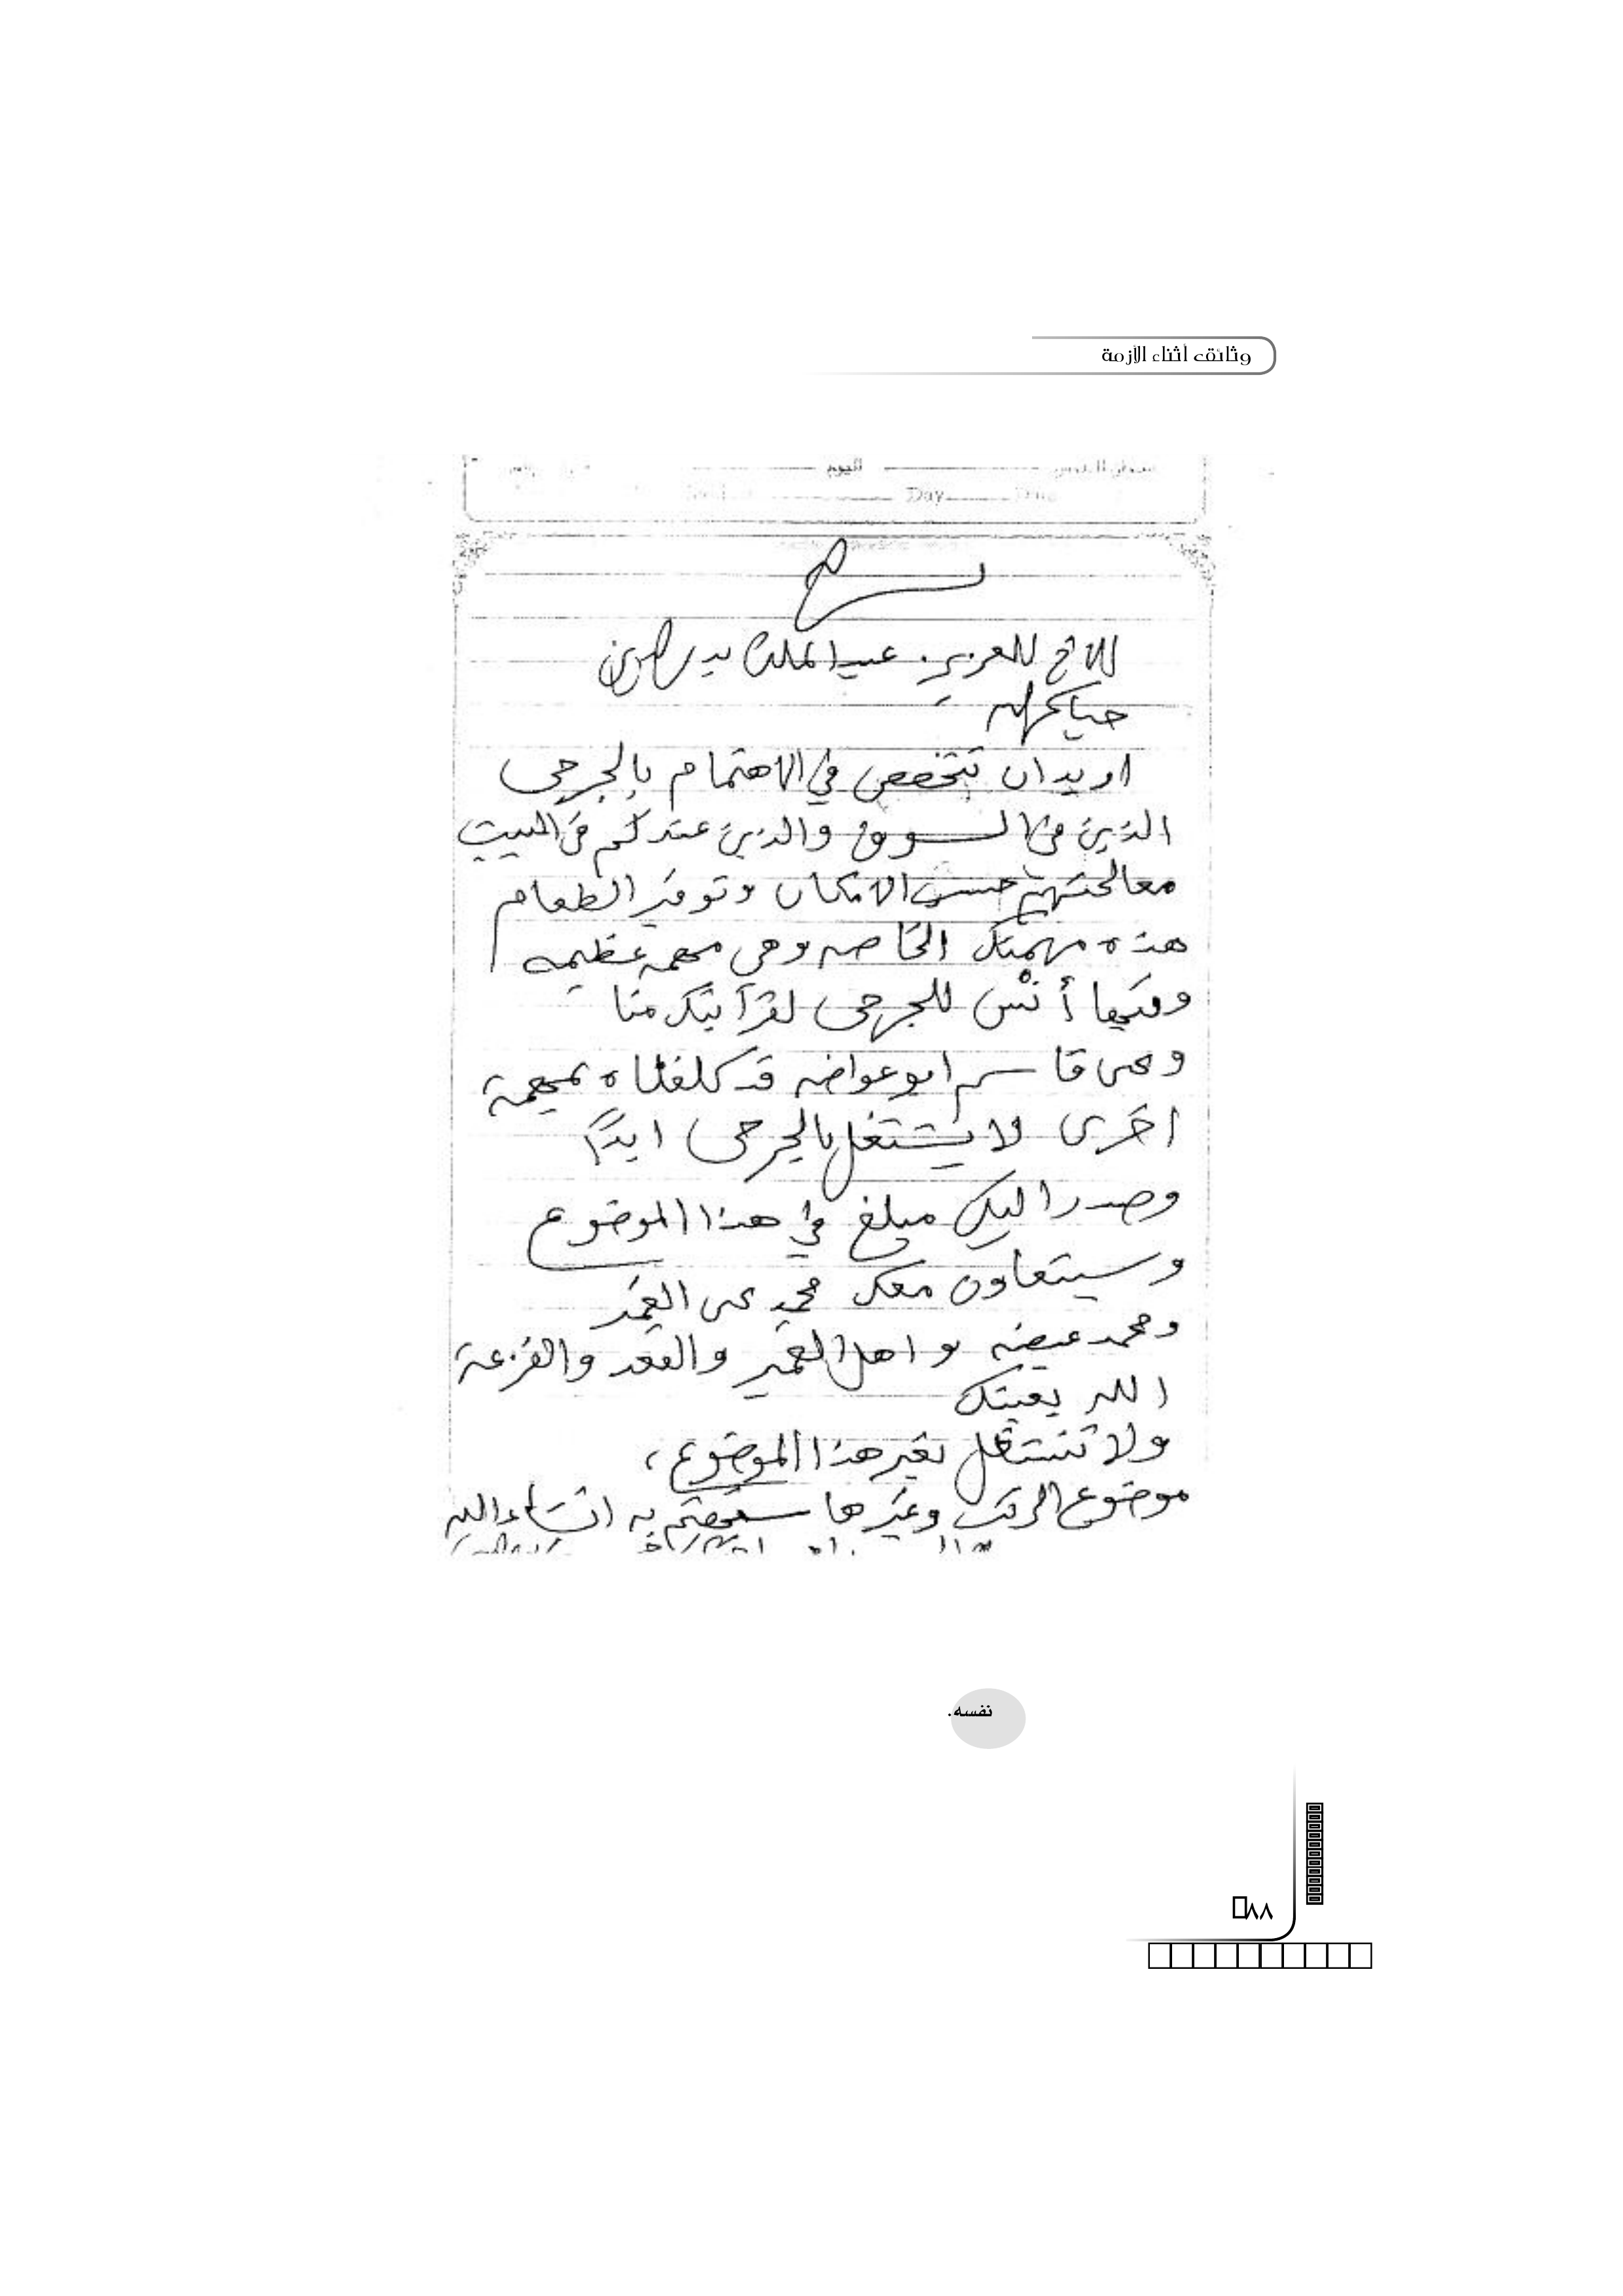 وثائق أثناء الأزمة
اليوم
Day Date
الاخ العزيز عبدالملك بدرالدين
حياكم الله
اريد ان تتخصص في الاهتمام بالجرحى
الذين في السوق والذين عندكم في البيت
معالجتهم حسب الامكان وتوفير الطعام
هذه مهمتك الخاصه وهي مهمه عظيمه
وفيها أنْس للجرحى لقرابتك منا
وحتى قاسم ابوعواضه قد كلفناه بمهمة
اخرى لا يشتغل بالجرحى ابداً
وصدر اليك مبلغ في هذا الموضوع
وسيتعاون معك محمد يحيى الغمير
ومحمد عيضه و اهل الغمير والقعد والقزعة
الله يعينك
ولا تنشغل بغير هذا الموضوع،
موضوع الرتب وغيرها سنهتم به انشاء الله
نفسه.
٨٨